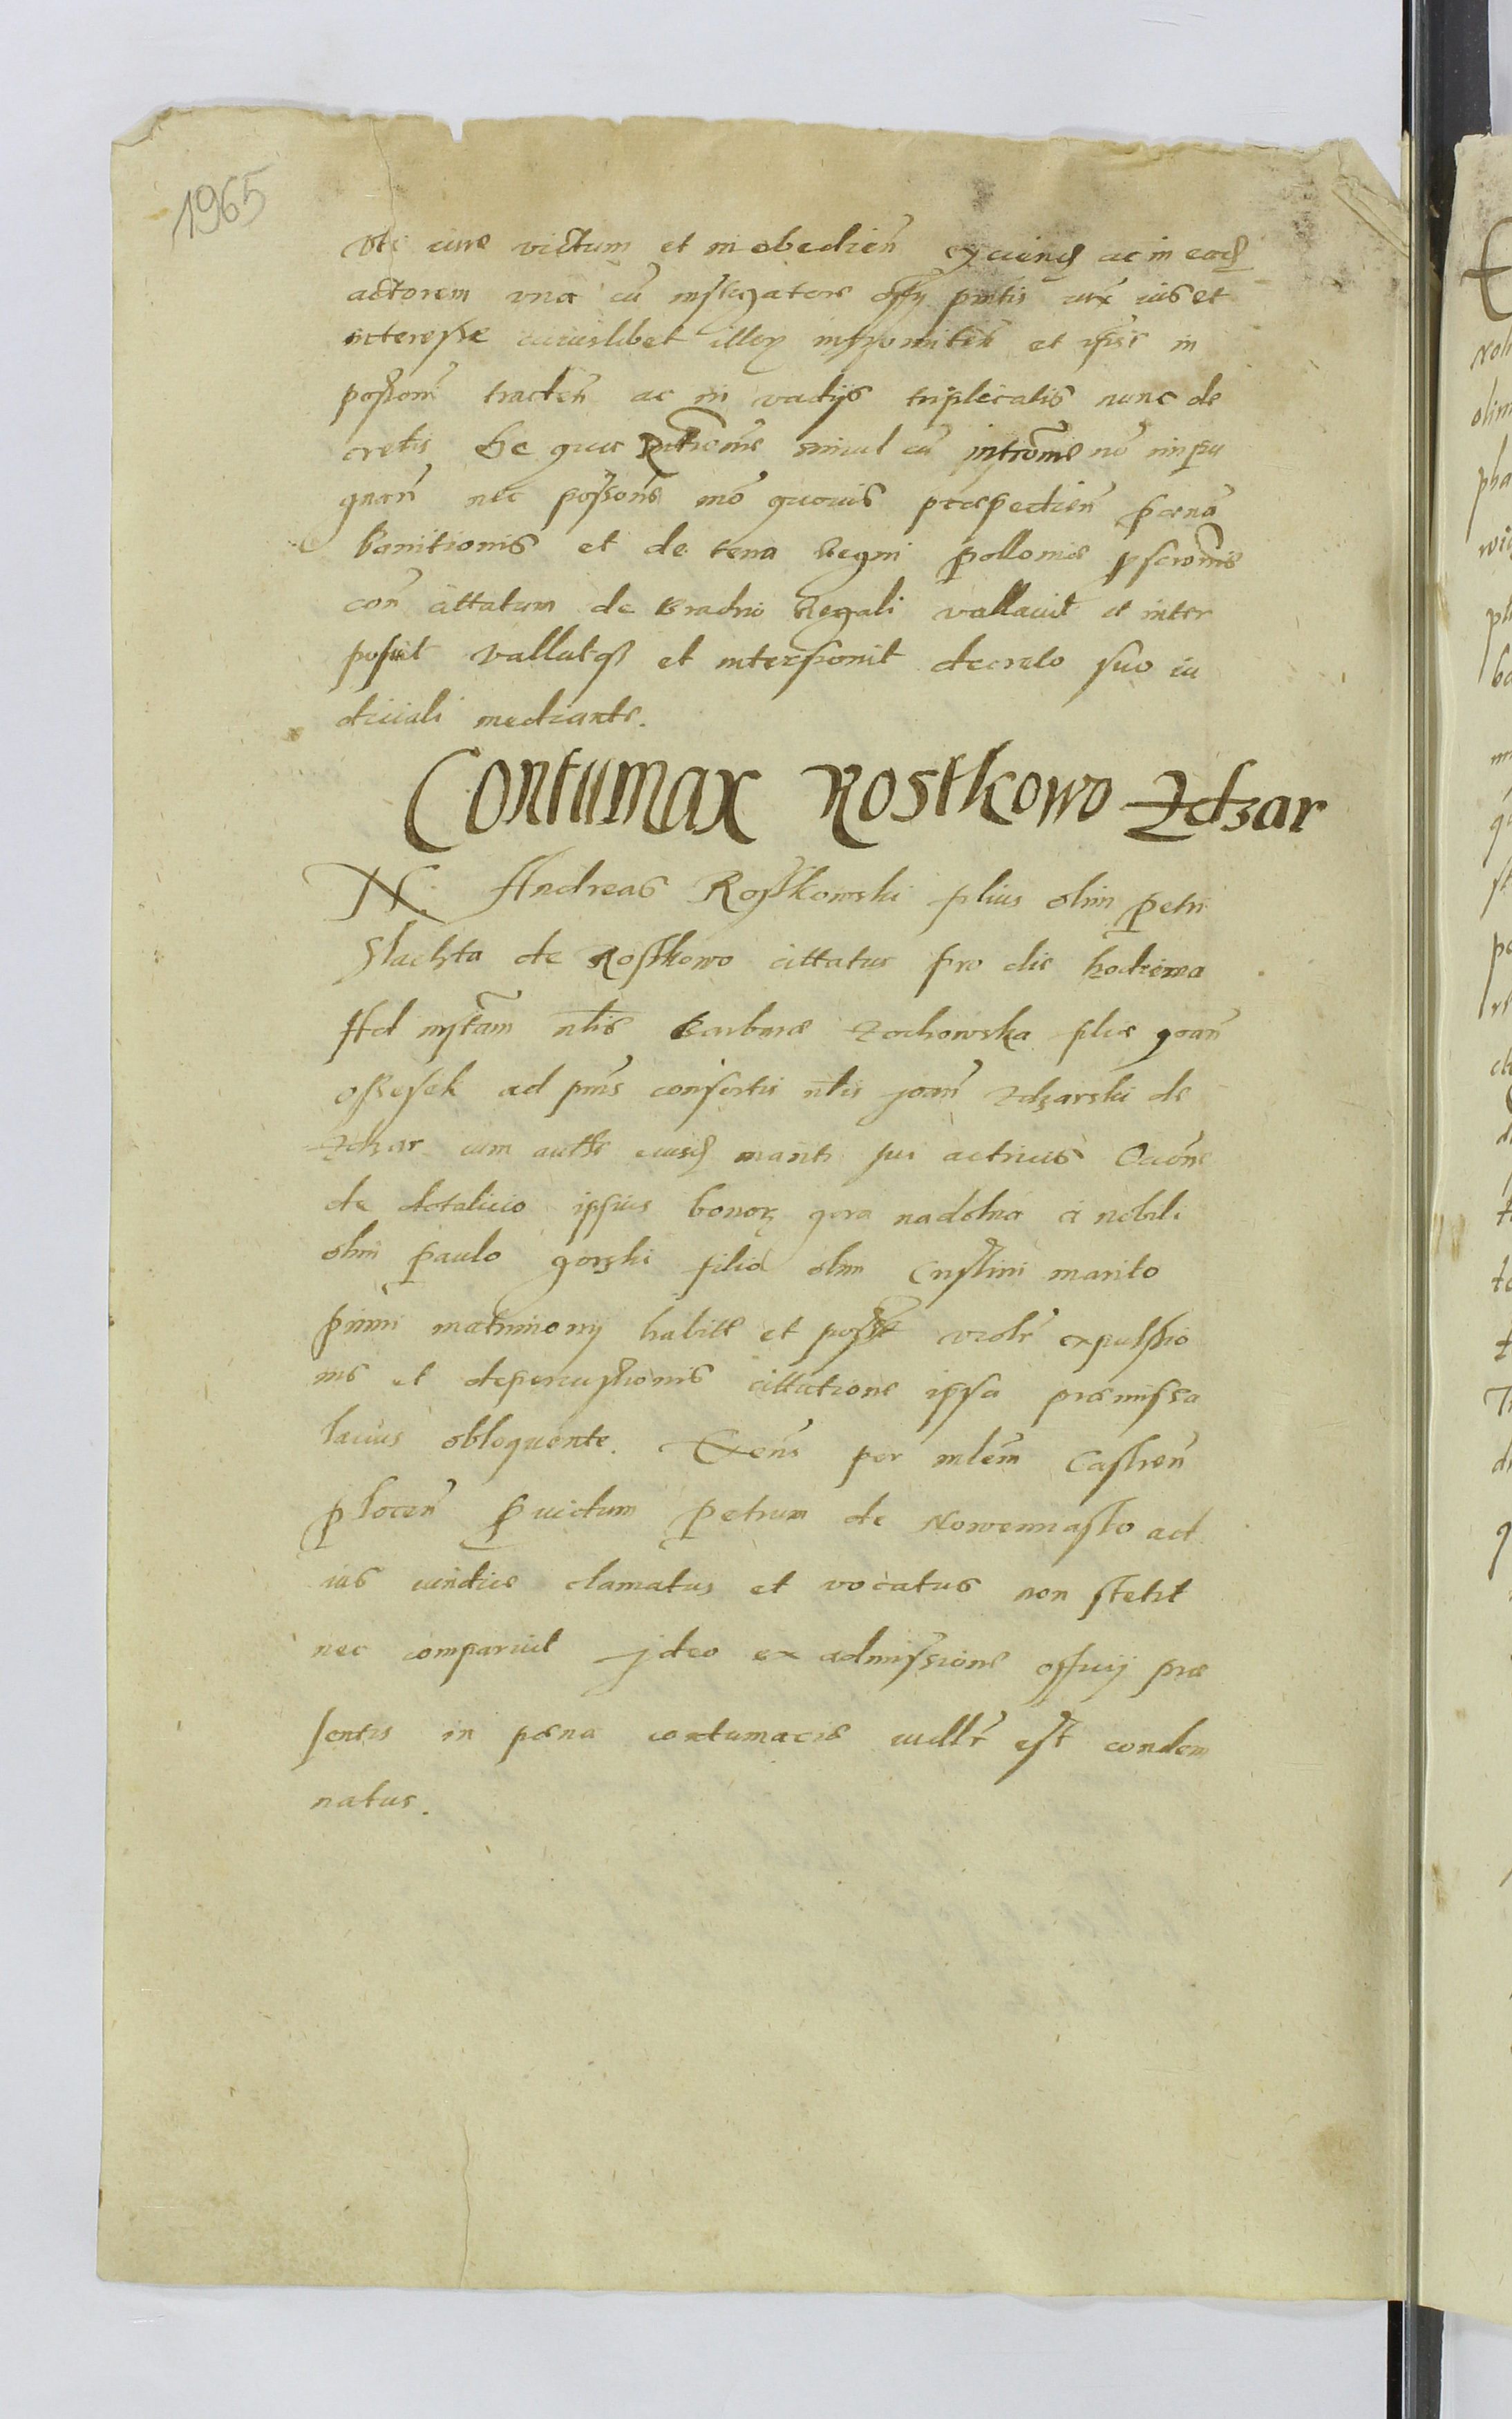 1965
uti iure victum et inobedien̄ ac in eod
actorem vna cū instigatore offy pn̄tis iux̄ ius et
interesse cuiuslibet illor̨ intromitten̄ et ipsis in
possiom̄ traden̄ ac in vadijs triplicatis nunc de
cretis De qua simul cū intromis̄ nō impu
gnan̄ nec possioms̄ mō quovis prepedien̄ pœnā
banitionis et de terra Regni polloniæ pscroms̄
con̄ cittatum de Gradu Regali vallavit et inter
posuit Vallatqȝ et interponit decreto suo iu
diciali mediante.
Contumax Rostkowo Zdzar
N. Andreas Rostkowski filius olim petri
Slachta de Rostkowo cittatus pro die hodierna
Ad instam̄ nlis̄ Barbaræ Zochowska filiæ Joan̄
ossesek ad pn̄s consortis nlis̄ Joan̄ Zdzarski de
Zdzar cum autte eiusd mariti sui actricis Occōne
de dotalicio ipsius bonor̨ gora nadolna a nobili
olim paulo gorski filio olim Cristini marito
primi matrimonij habite et violr̄ expulsio
nis et depercussionis cittatione ipsa præmissa
lacius obloquente. per mlem̄ Castren̄
plocen̄ puidum petrum de Nowemiasto ad
ius iuridice clamatus et vocatus non stetit
nec comparuit Jdeo ex admissione officij præ
sentis in pœna contumaciæ iudlr̄ est condem
natus.